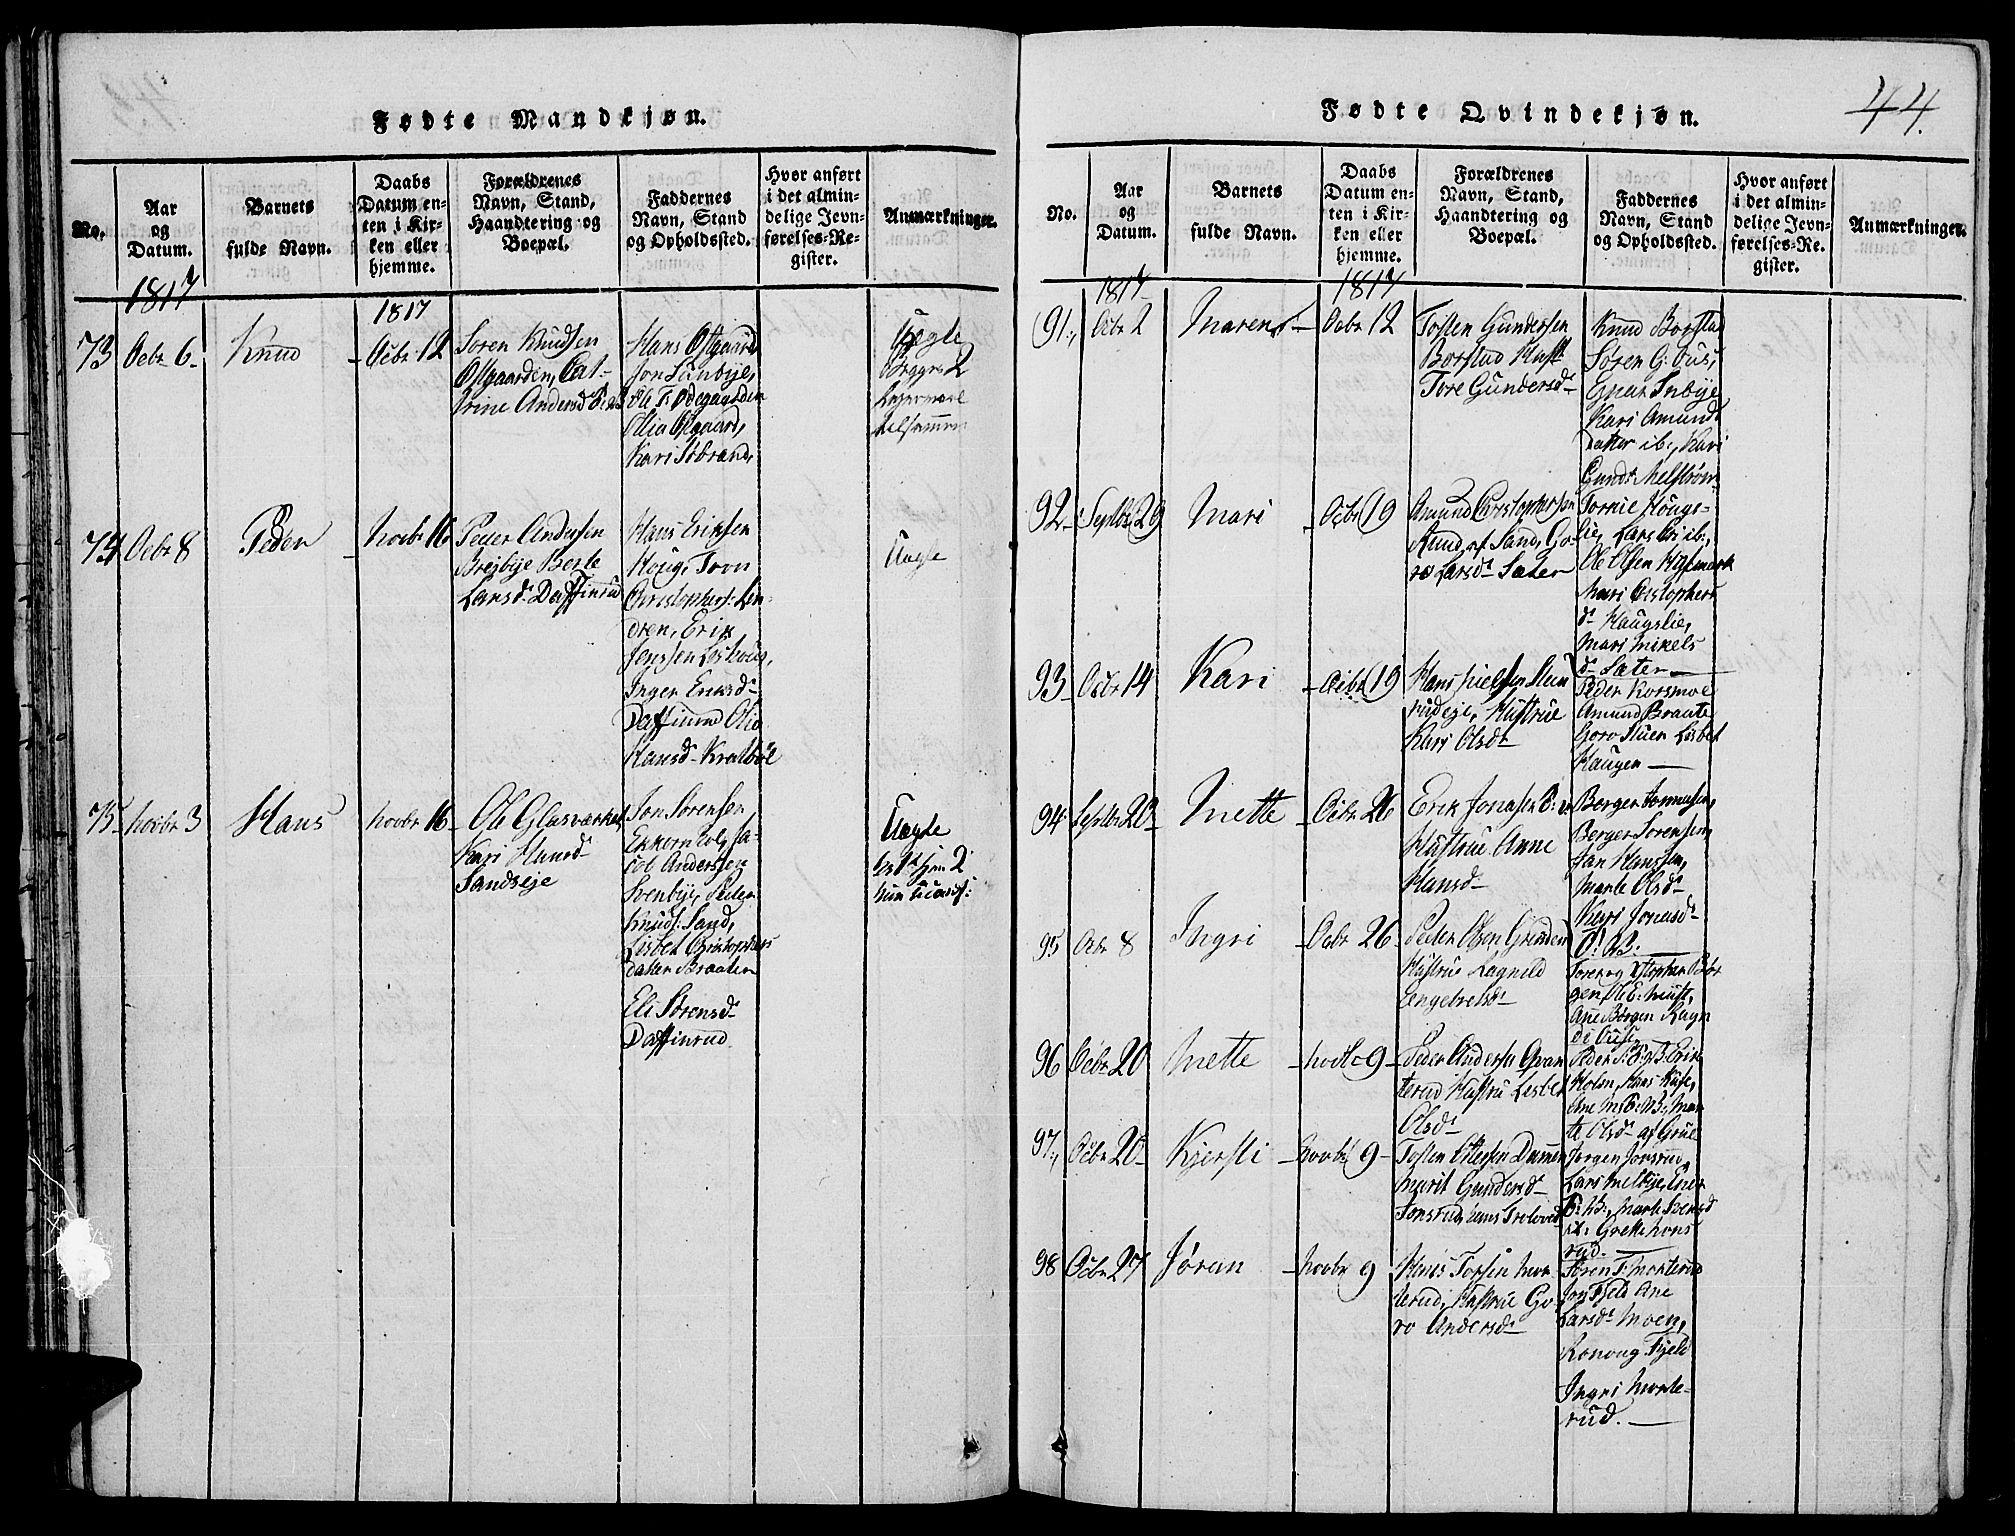 Fødte Mandkjøn.
No.
Aar
og
Datum.
Barnets
fulde Navn.
Daabs
Datum en-
ten i Kir-
ken eller
hjemme.
Forældrenes
Navn, Stand,
Haandtering og
Boepæl.
Faddernes
Navn, Stand
og Opholdssted.
Hvor anført
i det almin-
delige Jevn-
førelses-Re-
gister.
Anmærkninger.
1817
1817
73
Ocbr 6.
Knud
Ocbr. 12
Soren Knudsen
Ostgaarden, Cat-
rine Andersd
Hans Ostgaard
Jon Lunbye,
Ole T. Odegaarden
Olia Ostgaard,
Kari Sobrand,
Uægte
2
74
Ocbr 8
Peder
Novbr 16
Peder Andersen
Brejbye Berte
Larsd. Daffinrud
Hans Eriksen
Houg, Tron
Christophers: Lin-
dren, Erik
Jonssen
Inger Eriksd
Daffinrud Olia
Hansd
Uægte
75
Novbr 3
Hans
Novbr 16
Ole Glasværket
Kari Hansd
Sandseje
Jon Sorensen
Ekkornhol, Ja-
cob Andersen
Svenbye, Peder
Knuds: Sand,
Lisbet Cristophers
datter Braaten
Eli Sorensd
Daffinrud
Uægte
2
Fødte Qvindekjøn.
44.
No.
Aar
og
Datum.
Barnets
fulde Navn.
Daabs
Datum en-
ten i Kir-
ken eller
hjemme.
Forældrenes
Navn, Stand,
Haandtering og
Boepæl.
Faddernes
Navn, Stand
og Opholdssted.
Hvor anført
i det almin-
delige Jevn-
førelses-Re-
gister.
Anmærkninger.
1817
1817
91.
Ocbr 2
Maren
Ocbr 12
Tosten Gundersen
Borstad Hust:
Tore Gundersd
Knud Borstad
Soren G: Ous,
Gunar Inbye
Kari Amund
datter ib:, Kari
Gundr Melstrom
92
Septbr 29
Mari
Ocbr 19
Amund Cristophersen
Rund af Sand, Go-
ro Larsd Sæter
Tomie Houge-
lie, Lars ib:,
Ole Olsen Kalmark
Mari Cristophers
d Haugslie,
Mari Mikels
d Sæter
93
Ocbr 14
Kari
Ocbr 19
Hans Nielsen Stue
rudeje, Hustrue
Kari Olsd
Peder Korsmoe
Amund Braate
Goro Stuen Lisbet
Haugen
94
Septbr 20
Mette
Ocbr 26
Erik Jonasen
Hustrue Anne
Hansd
Borger
Berger Sorensen,
Jan Hanssen,
Marte Olsd
Kari Jonasd
95
Ocbr 8
Ingri
Ocbr 26
Peder Olsen Grinden
Hustrue Lagnild
Engebretsd
gen Ole E:
Ane Børgen Ragn
di Ous.
96
Ocbr 20
Mette
Novbr 9
Peder Anderse Gran
terud Hustru Lisbet
Olsd
Peder Erik
Holm, Hans Huse,
Ane Mar
te Olsd af Grue
97
Ocbr 20
Kjersti
Novbr 9
Tosten Olesen Dammen
Marit Gundersd
Jonsrud, hans Trolovede
Jorgen Jonsrud,
Lars Melbye, Ener
Marte Svensd
Grette Jons
rud.
98
Ocbr 27
Jøran
Novbr 9
Hans Torsen Mor
terud, Hustrue Go-
ro Andersd
Soren T: Morterud
Jon Fjeld Ane
Larsd. Moen,
Ronoug Fjeld
Ingri Morte-
rud.